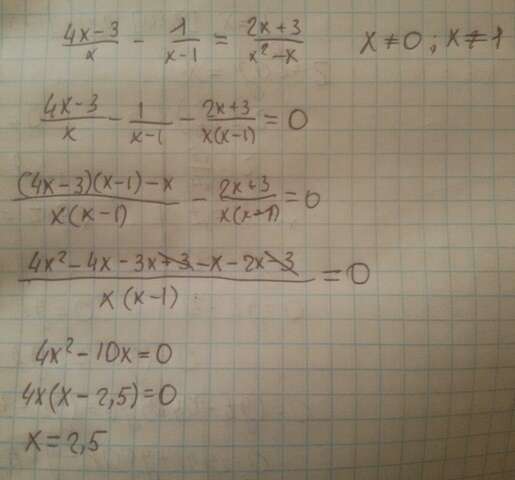 (4x-3)/x - 1/(x-1) = (2x+3)/(x²-x) x≠0; x≠1
(4x-3)/x - 1/(x-1) - (2x+3)/(x(x-1)) = 0
((4x-3)(x-1)-x)/(x(x-1)) - (2x+3)/(x(x-1)) = 0
(4x²-4x-3x+3-x-2x-3)/(x(x-1)) = 0
4x²-10x=0
4x(x-2,5)=0
x=2,5